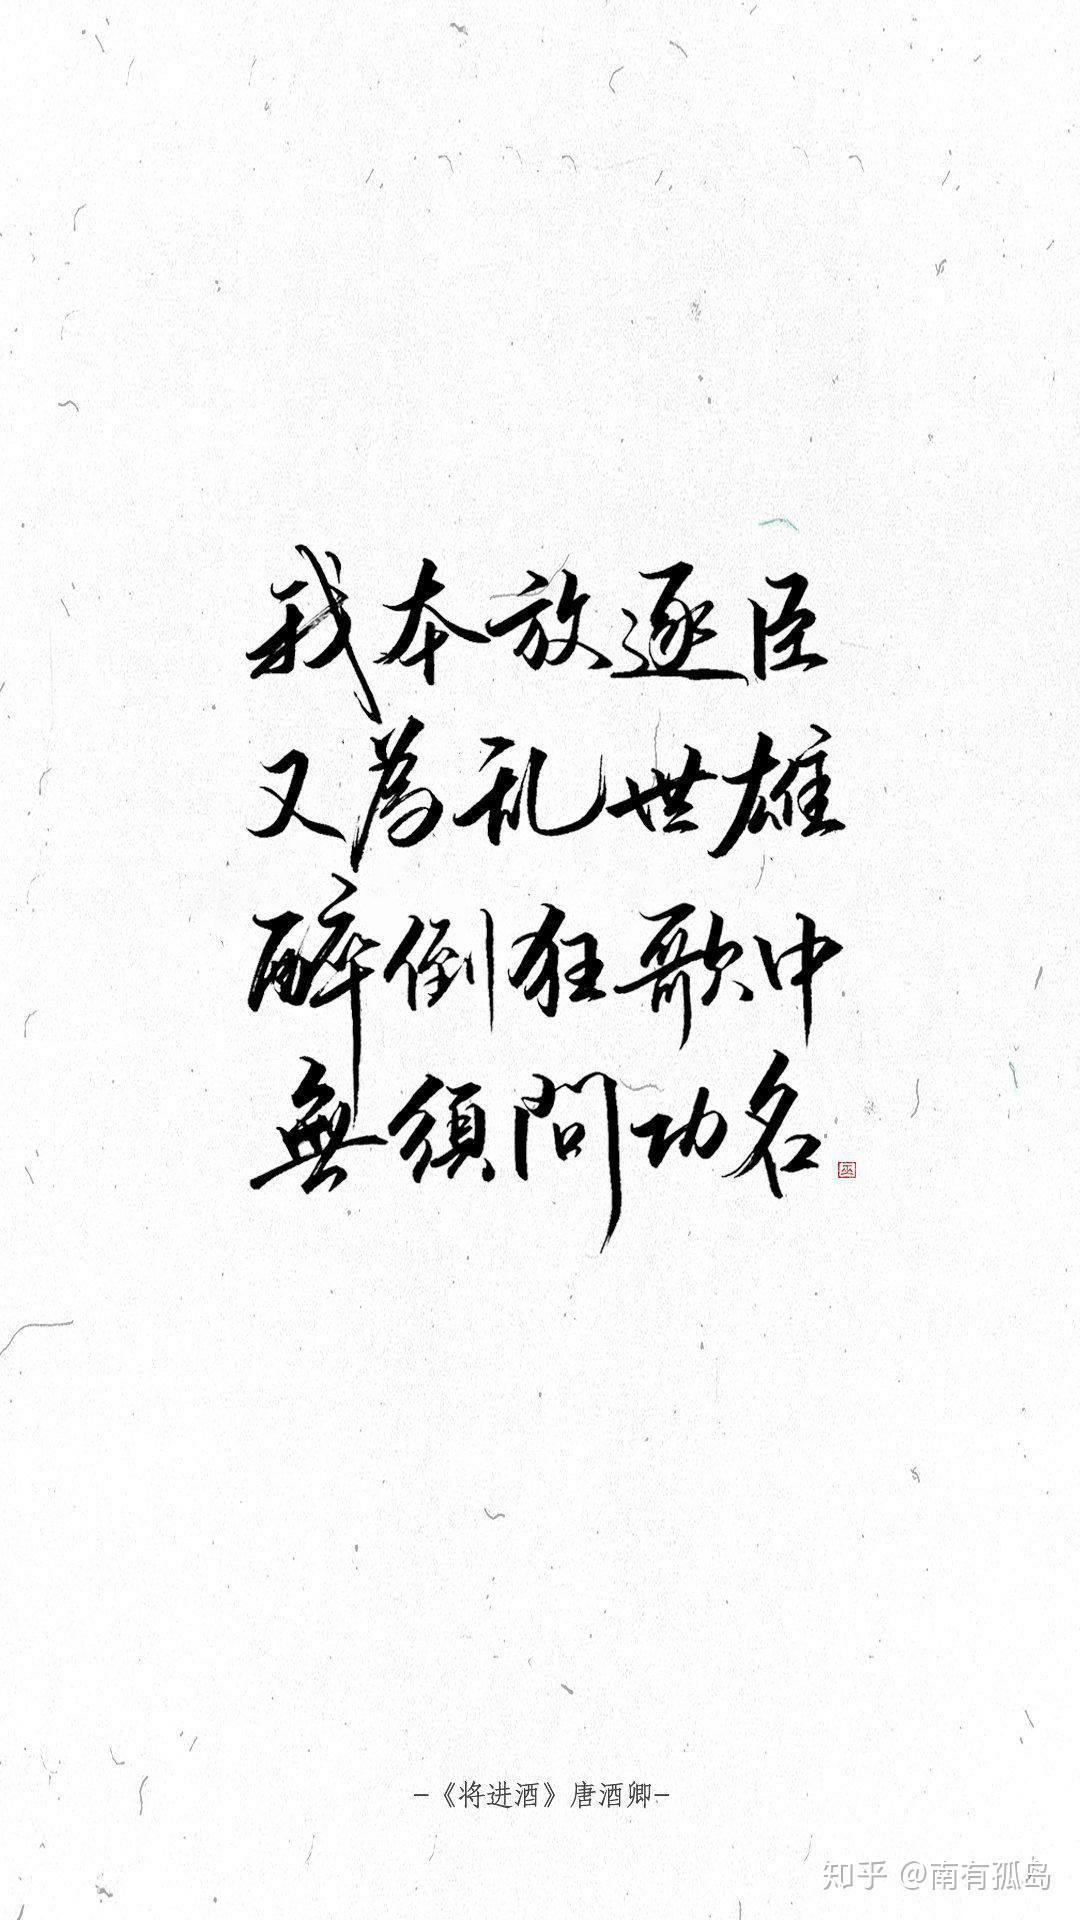 我本放逐臣
又為乱世雄
醉倒狂歌中
無須問功名
巫
-《将进酒》唐酒卿-
知乎 @南有孤岛